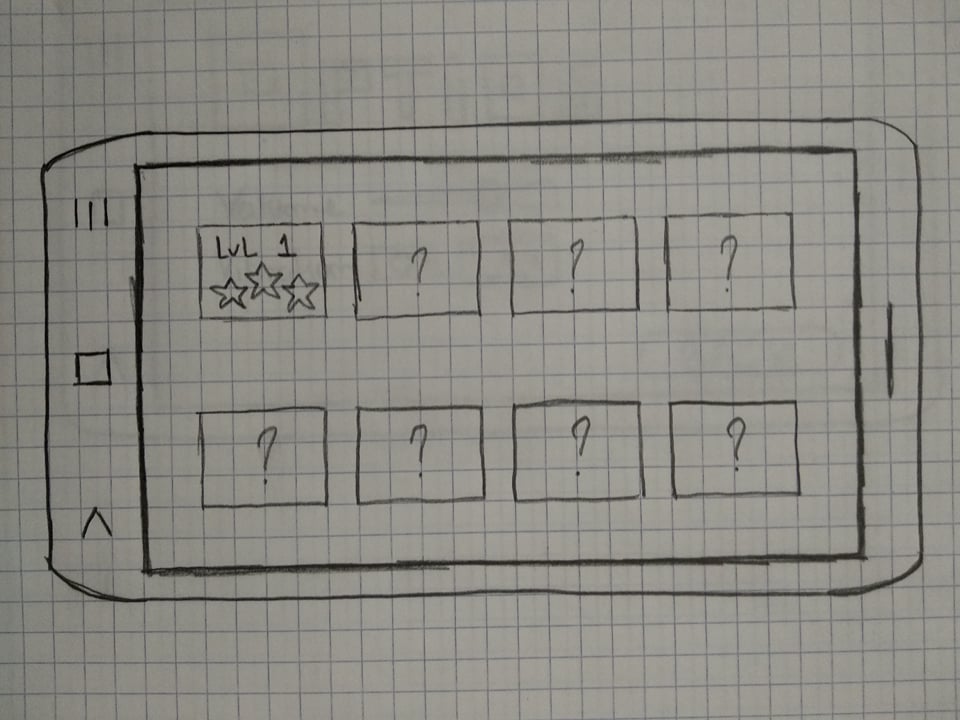 LvL 1
? ? ?
? ? ? ?